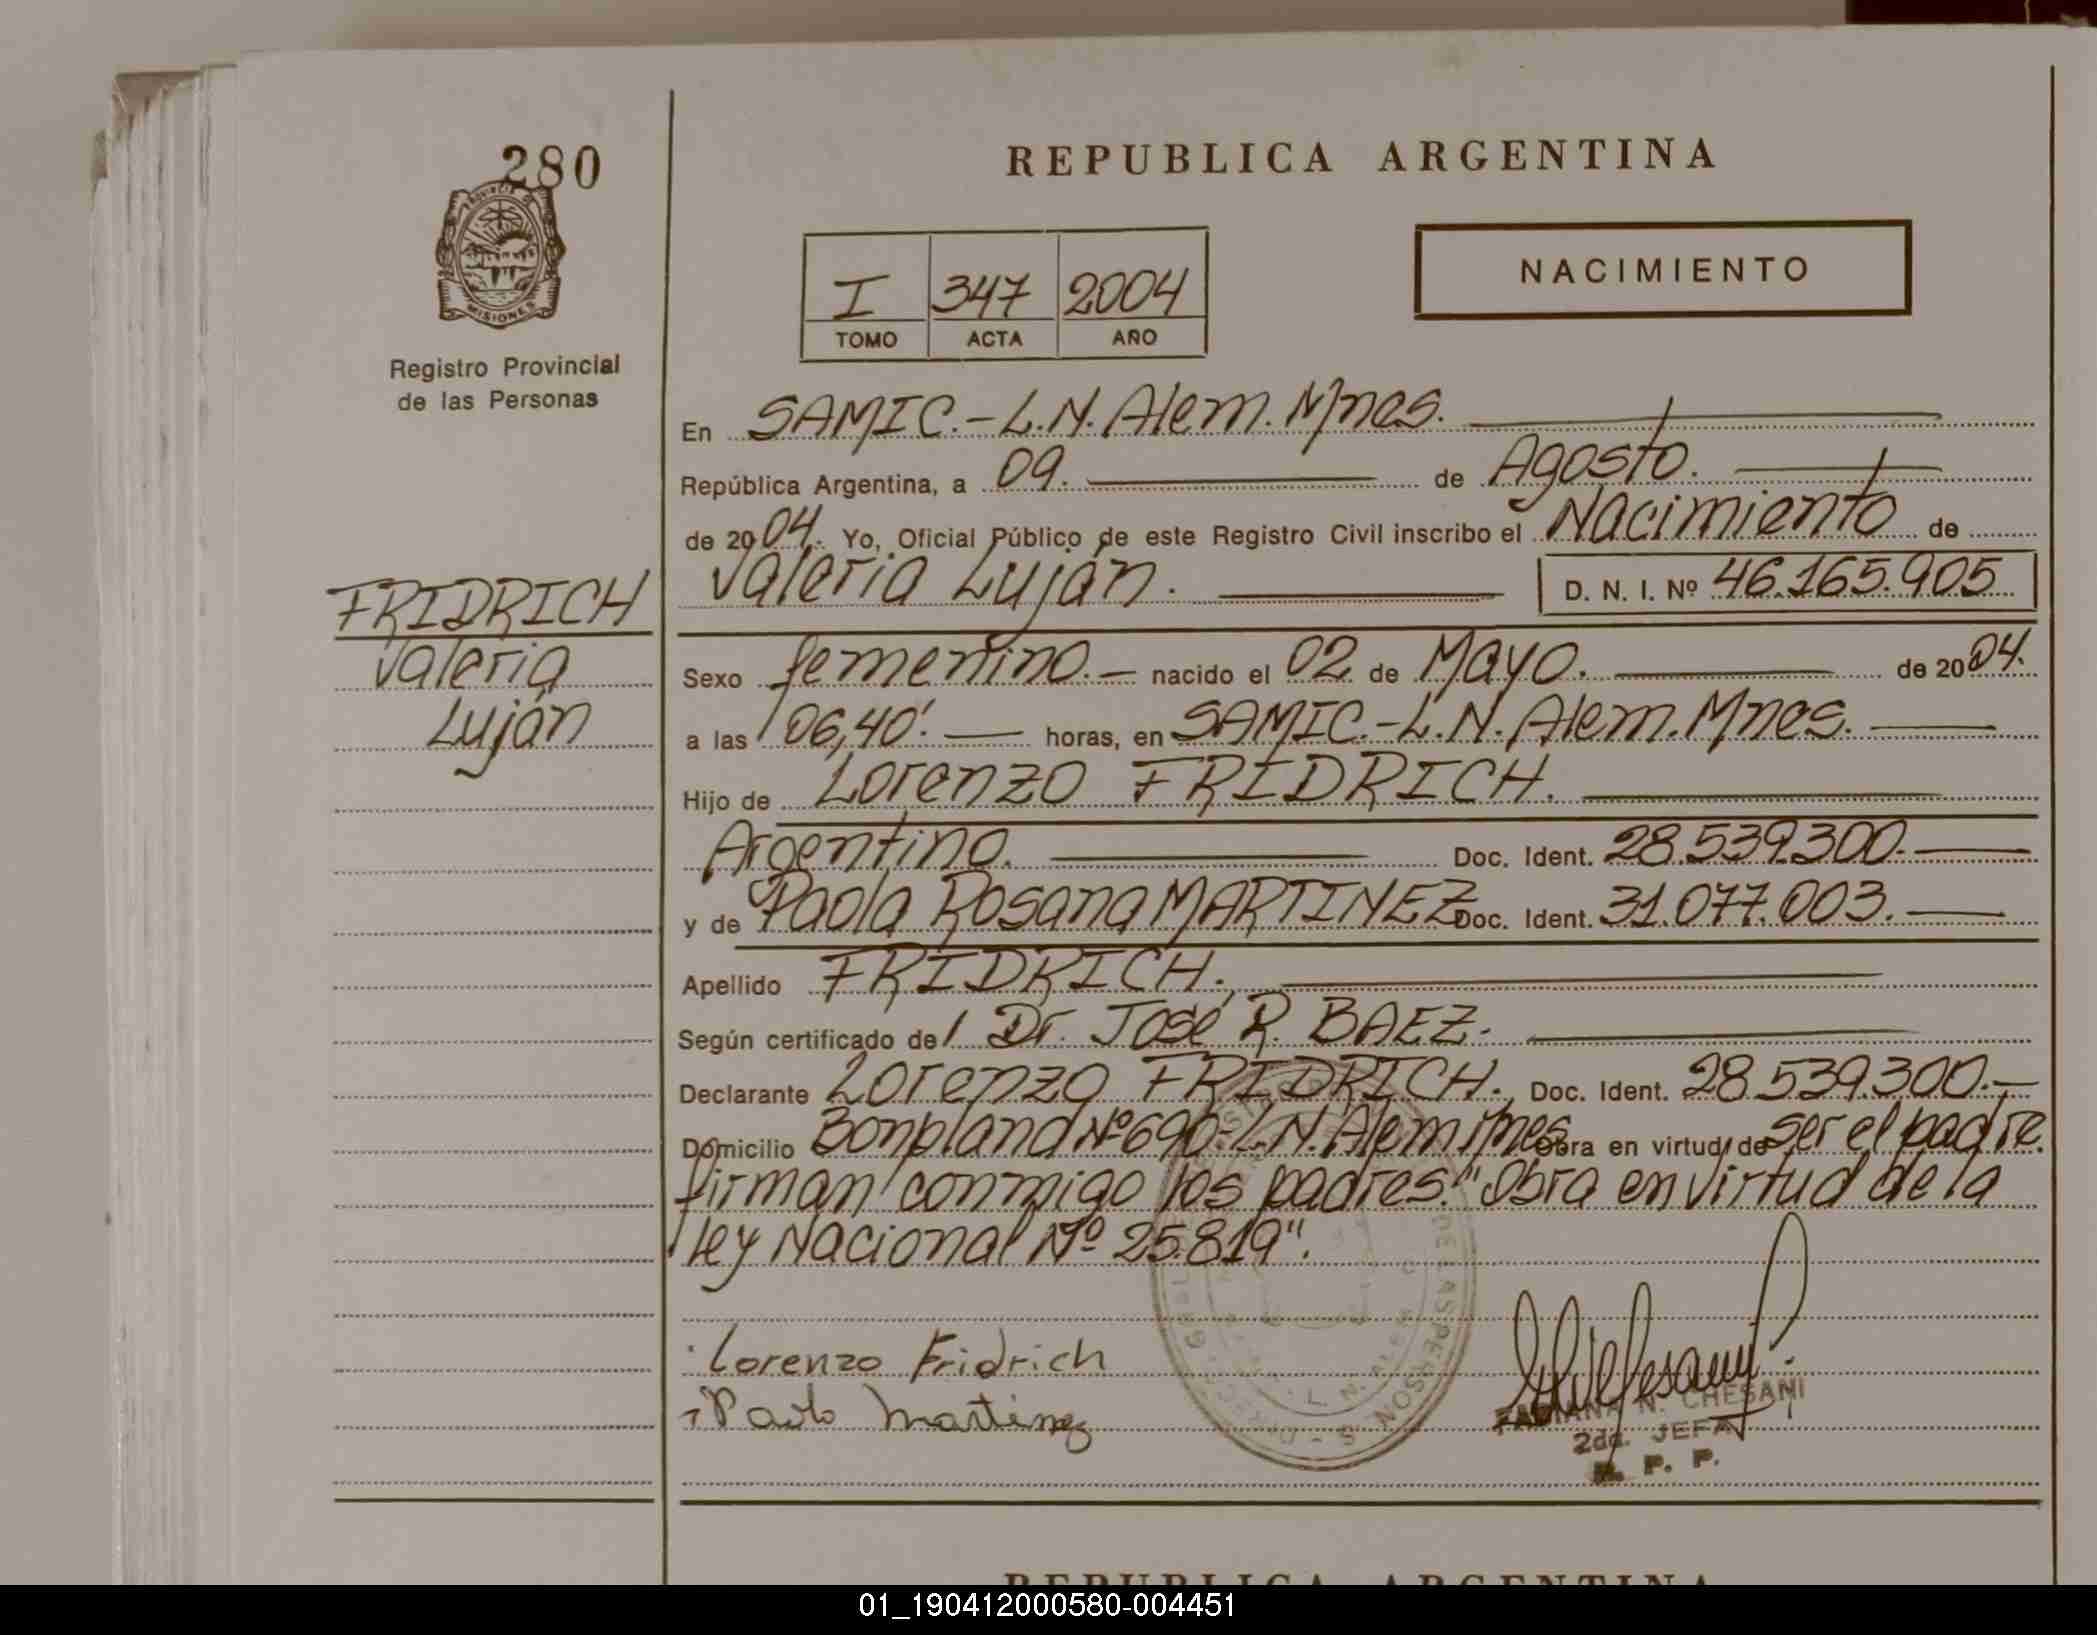 280
PROVINCIA DE
MISIONES
Registro Provincial
de las Personas
FRIDRICH
Valeria
Luján
REPUBLICA ARGENTINA
I 347 2004
TOMO ACTA AÑO
NACIMIENTO
En SAMIC.-L.N.Alem.Mnes.
República Argentina, a 09. de Agosto.
de 2004. Yo, Oficial Público de este Registro Civil inscribo el Nacimiento de
Valeria Luján. D. N. I. Nº 46.165.905
Sexo femenino.- nacido el 02 de Mayo. de 2004.
a las 06,40'. horas, en SAMIC.-L.N.Alem.Mnes.
Hijo de Lorenzo FRIDRICH.
Argentino. Doc. Ident. 28.539.300.
y de Paola Rosana MARTINEZ Doc. Ident. 31.077.003.
Apellido FRIDRICH.
Según certificado del Dr. José R. BAEZ.-
Declarante Lorenzo FRIDRICH. Doc. Ident. 28.539.300.-
Domicilio Bonpland Nº690-L.N.Alem Mnes Obra en virtud de ser el padre.
firman conmigo los padres."Obra en virtud de la
ley Nacional Nº 25.819".
Lorenzo Fridrich
Paola Martinez
FABIANA N. CHESANI
2da. JEFA
R. P. P.
REPUBLICA ARGENTINA
01_190412000580-004451